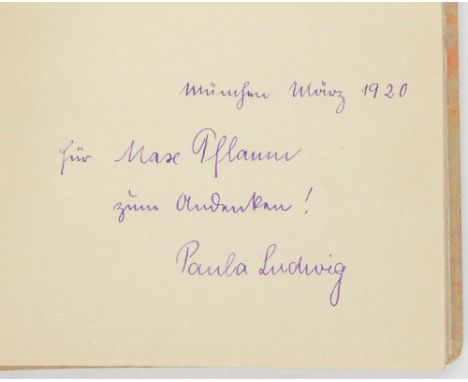 München März 1920
für Max Pflaum
zum Andenken!
Paula Ludwig